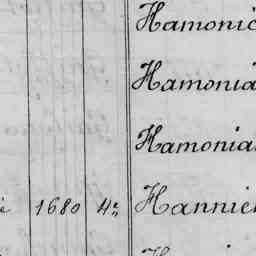 Hamonic
Hamonia
Hamonia
1680 4e Hanniel